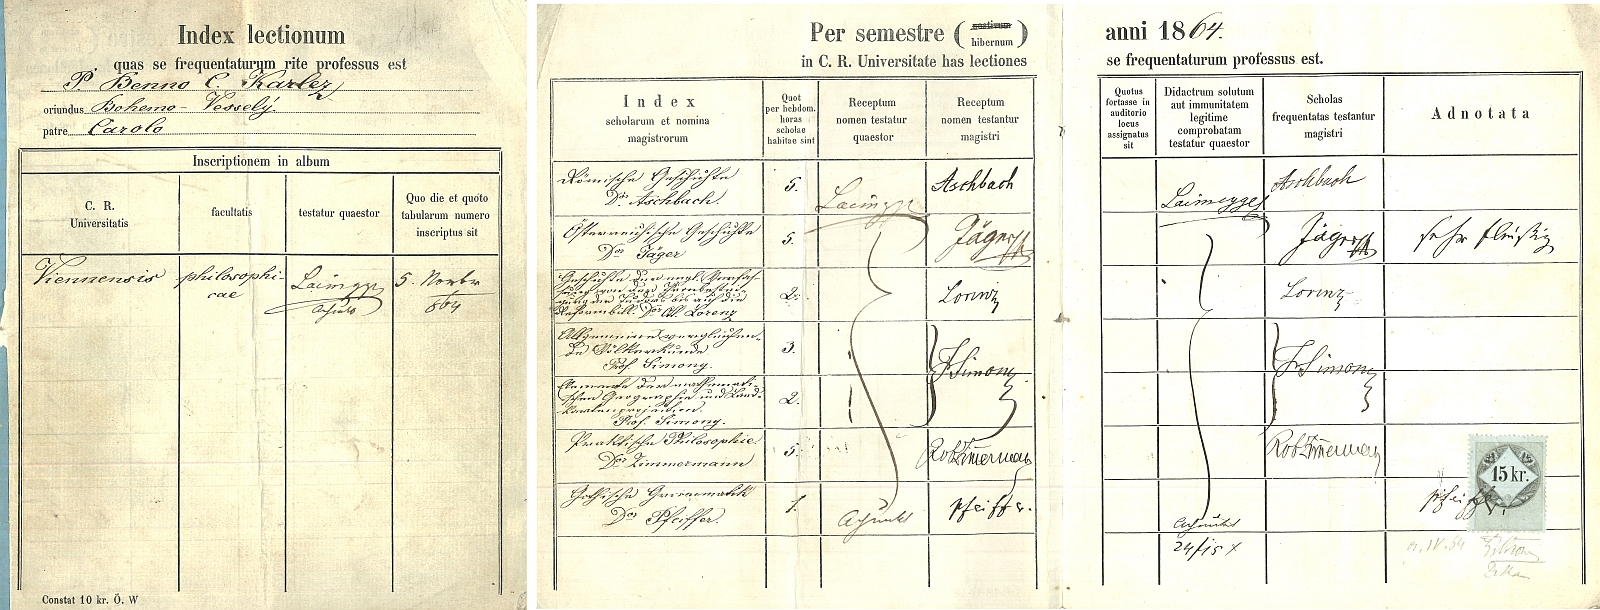 Index lectionum
quas se frequentaturum rite professus est
P. Benno C. Karlez
oriundus Bohemo - Vesselý
patre Carolo
Inscriptionem in album
C. R.
Universitatis
facultatis
testatur quaestor
Quo die et quoto
tabularum numero
inscriptus sit
Viennensis
philosophi-
cae
5. Novbr
864
Constat 10 kr. Ö. W
Per semestre (aestivum
hibernum)
in C. R. Universitate has lectiones
Index
scholarum et nomina
magistrorum
Quot
per hebdom.
horas
scholae
habitae sint
Receptum
nomen testatur
quaestor
Receptum
nomen testantur
magistri
Römische Geschichte
Dor Aschbach.
5.
Aschbach
Österreichische Geschichte
Dor Jäger
5.
Jäger
Geschichte der engl. Verfas-
Reformbill. Dor O. Lorenz
2.
Lorenz
Allgemeine vergleichen-
de Völkerkunde
Prof. Simony.
3.
F. Simony
Elemente der mathemati-
schen Geographie und Land-
kartenprojection.
Prof. Simony.
2.
Praktische Philosophie
Dor Zimmermann
5.
Rob Zimmermann
Gothische Grammatik
Dor Pfeiffer.
1.
Pfeiffer.
anni 1864.
se frequentaturum professus est.
Quotus
fortasse in
auditorio
locus
assignatus
sit
Didactrum solutum
aut immunitatem
legitime
comprobatam
testatur quaestor
Scholas
frequentatas testantur
magistri
Adnotata
Aschbach
Jäger
sehr fleißig
Lorenz
F. Simony
Rob Zimmermann
15 kr.
Pfeiffer.
24/15 x